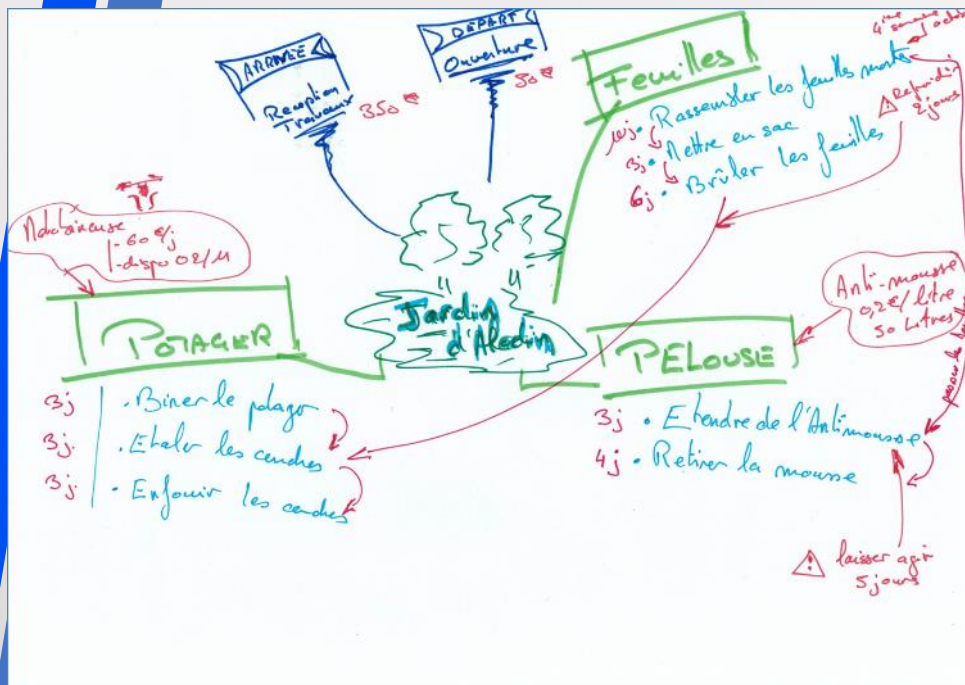 ARRIVÉE
Reception
Travaux
350 €
DÉPART
Ouverture
50 €
Feuilles
4ième semaine
octobre
10j. Rassembler les feuilles mortes
3j. Mettre en sac
6j. Brûler les feuilles
⚠ Refroidir
2 jours
- 60 €/j
- dispo 02/11
POTAGER
3j . Biner le potager
3j. . Etaler les cendres
3j. . Enfouir les cendres
Jardin
d'Aladin
Anti-mousse
0,2€/litre
50 Litres
PELOUSE
3j . Etendre de l'Antimousse
4j . Retirer la mousse
⚠ laisser agir
5 jours